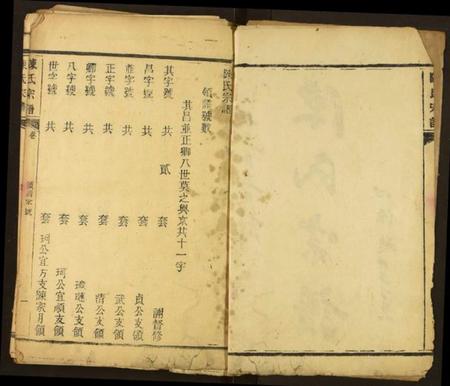 陳氏宗譜
領譜號數
其昌並正卿八世莫之與京共十一字
其字號 共 貳 套 謝督修
昌字號 共 套 貞公支領
並字號 共 套 武公支領
正字號 共 套 清公支領
卿字號 共 套 公支領
八字號 共 套 珂公宜順支領
世字號 共 套 珂公宜万支陳家月領
陳氏宗譜
卷
領譜字號
一
陳氏宗譜